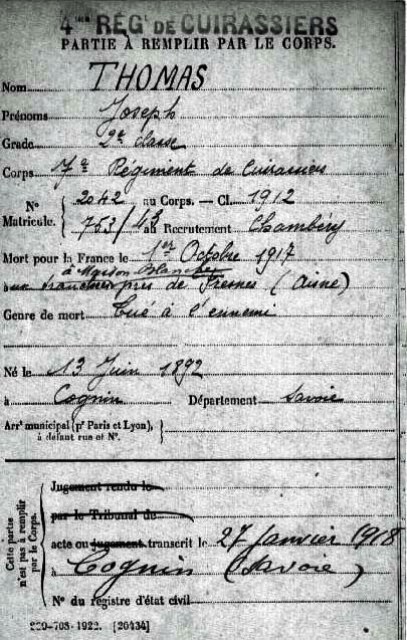 4me RÉGt DE CUIRASSIERS
PARTIE À REMPLIR PAR LE CORPS.
Nom THOMAS
Prénoms Joseph
Grade 2e classe
Corps 7e Régiment de Cuirassiers
N° Matricule. { 2042 au Corps. — Cl. 1912
753/45 au Recrutement Chambéry
Mort pour la France le 1er Octobre 1917
à Maison Blanche
aux tranchées près de Fresnes (Aisne)
Genre de mort Tué à l'ennemi
Né le 13 Juin 1892
à Cognin Département Savoie
Arrt municipal (pr Paris et Lyon), }
à défaut rue et N°.
Cette partie n'est pas à remplir par le Corps.
Jugement rendu le
par le Tribunal de
acte ou jugement transcrit le 27 Janvier 1918
à Cognin (Savoie)
N° du registre d'état civil
229-708-1922. [26434]